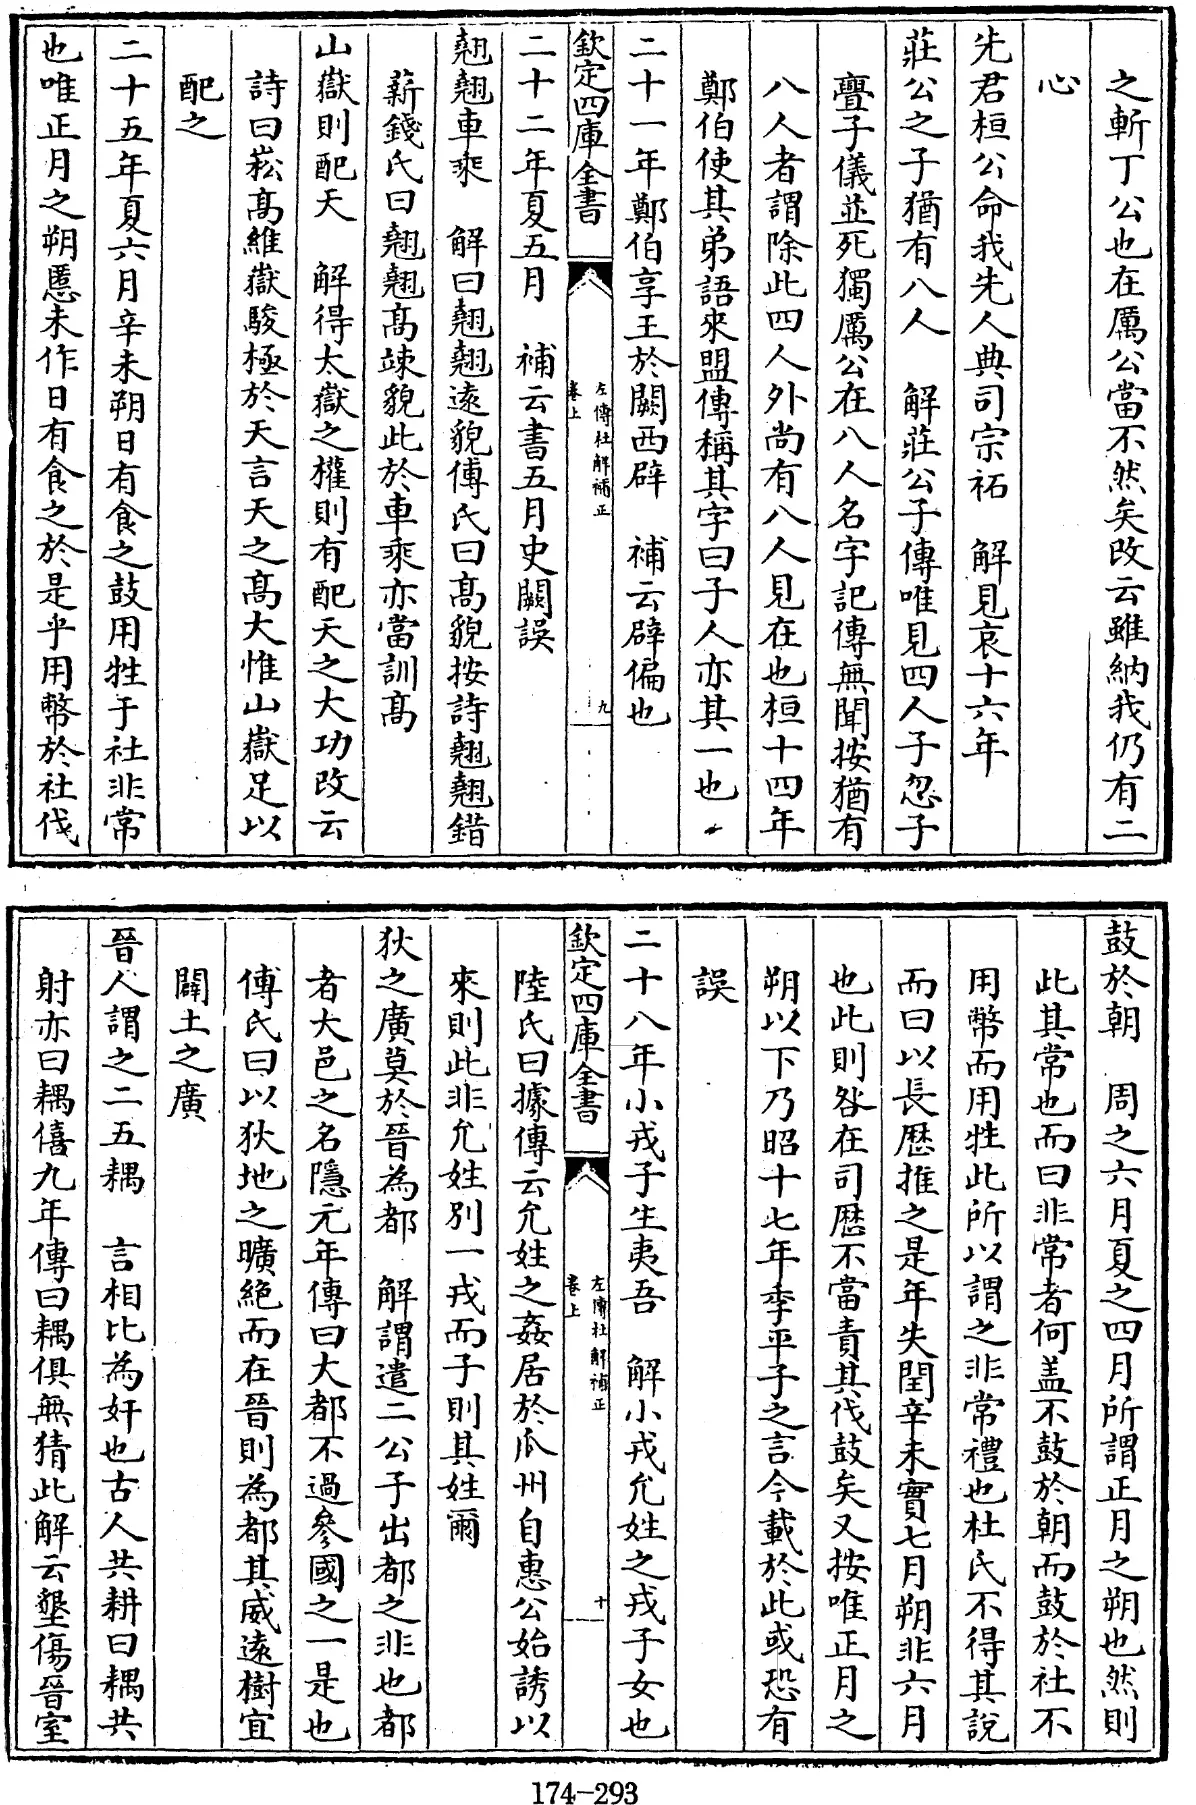 之斬丁公也在厲公當不然矣改云雖納我仍有二
心
先君桓公命我先人典司宗祏　解見哀十六年
莊公之子猶有八人　解莊公子傳唯見四人子忽子
亹子儀並死獨厲公在八人名字記傳無聞按猶有
八人者謂除此四人外尚有八人見在也桓十四年
鄭伯使其弟語來盟傳稱其字曰子人亦其一也
二十一年鄭伯享王於闕西辟　補云辟偏也
欽定四庫全書
左傳杜解補正
卷上
九
二十二年夏五月　補云書五月史闕誤
翹翹車乘　解曰翹翹遠貌傅氏曰高貌按詩翹翹錯
薪錢氏曰翹翹高竦貌此於車乘亦當訓高
山嶽則配天　解得太嶽之權則有配天之大功改云
詩曰崧高維嶽駿極於天言天之高大惟山嶽足以
配之
二十五年夏六月辛未朔日有食之鼓用牲于社非常
也唯正月之朔慝未作日有食之於是乎用幣於社伐
鼓於朝　周之六月夏之四月所謂正月之朔也然則
此其常也而曰非常者何盖不鼓於朝而鼓於社不
用幣而用牲此所以謂之非常禮也杜氏不得其說
而曰以長厯推之是年失閏辛未實七月朔非六月
也此則咎在司厯不當責其伐鼓矣又按唯正月之
朔以下乃昭十七年季平子之言今載於此或恐有
誤
二十八年小戎子生夷吾　解小戎允姓之戎子女也
欽定四庫全書
左傳杜解補正
卷上
十
陸氏曰據傳云允姓之姦居於瓜州自惠公始誘以
來則此非允姓別一戎而子則其姓爾
狄之廣莫於晉為都　解謂遣二公子出都之非也都
者大邑之名隱元年傳曰大都不過參國之一是也
傅氏曰以狄地之曠絶而在晉則為都其威遠樹宜
闢土之廣
晉人謂之二五耦　言相比為奸也古人共耕曰耦共
射亦曰耦僖九年傳曰耦俱無猜此解云墾傷晉室
174-293